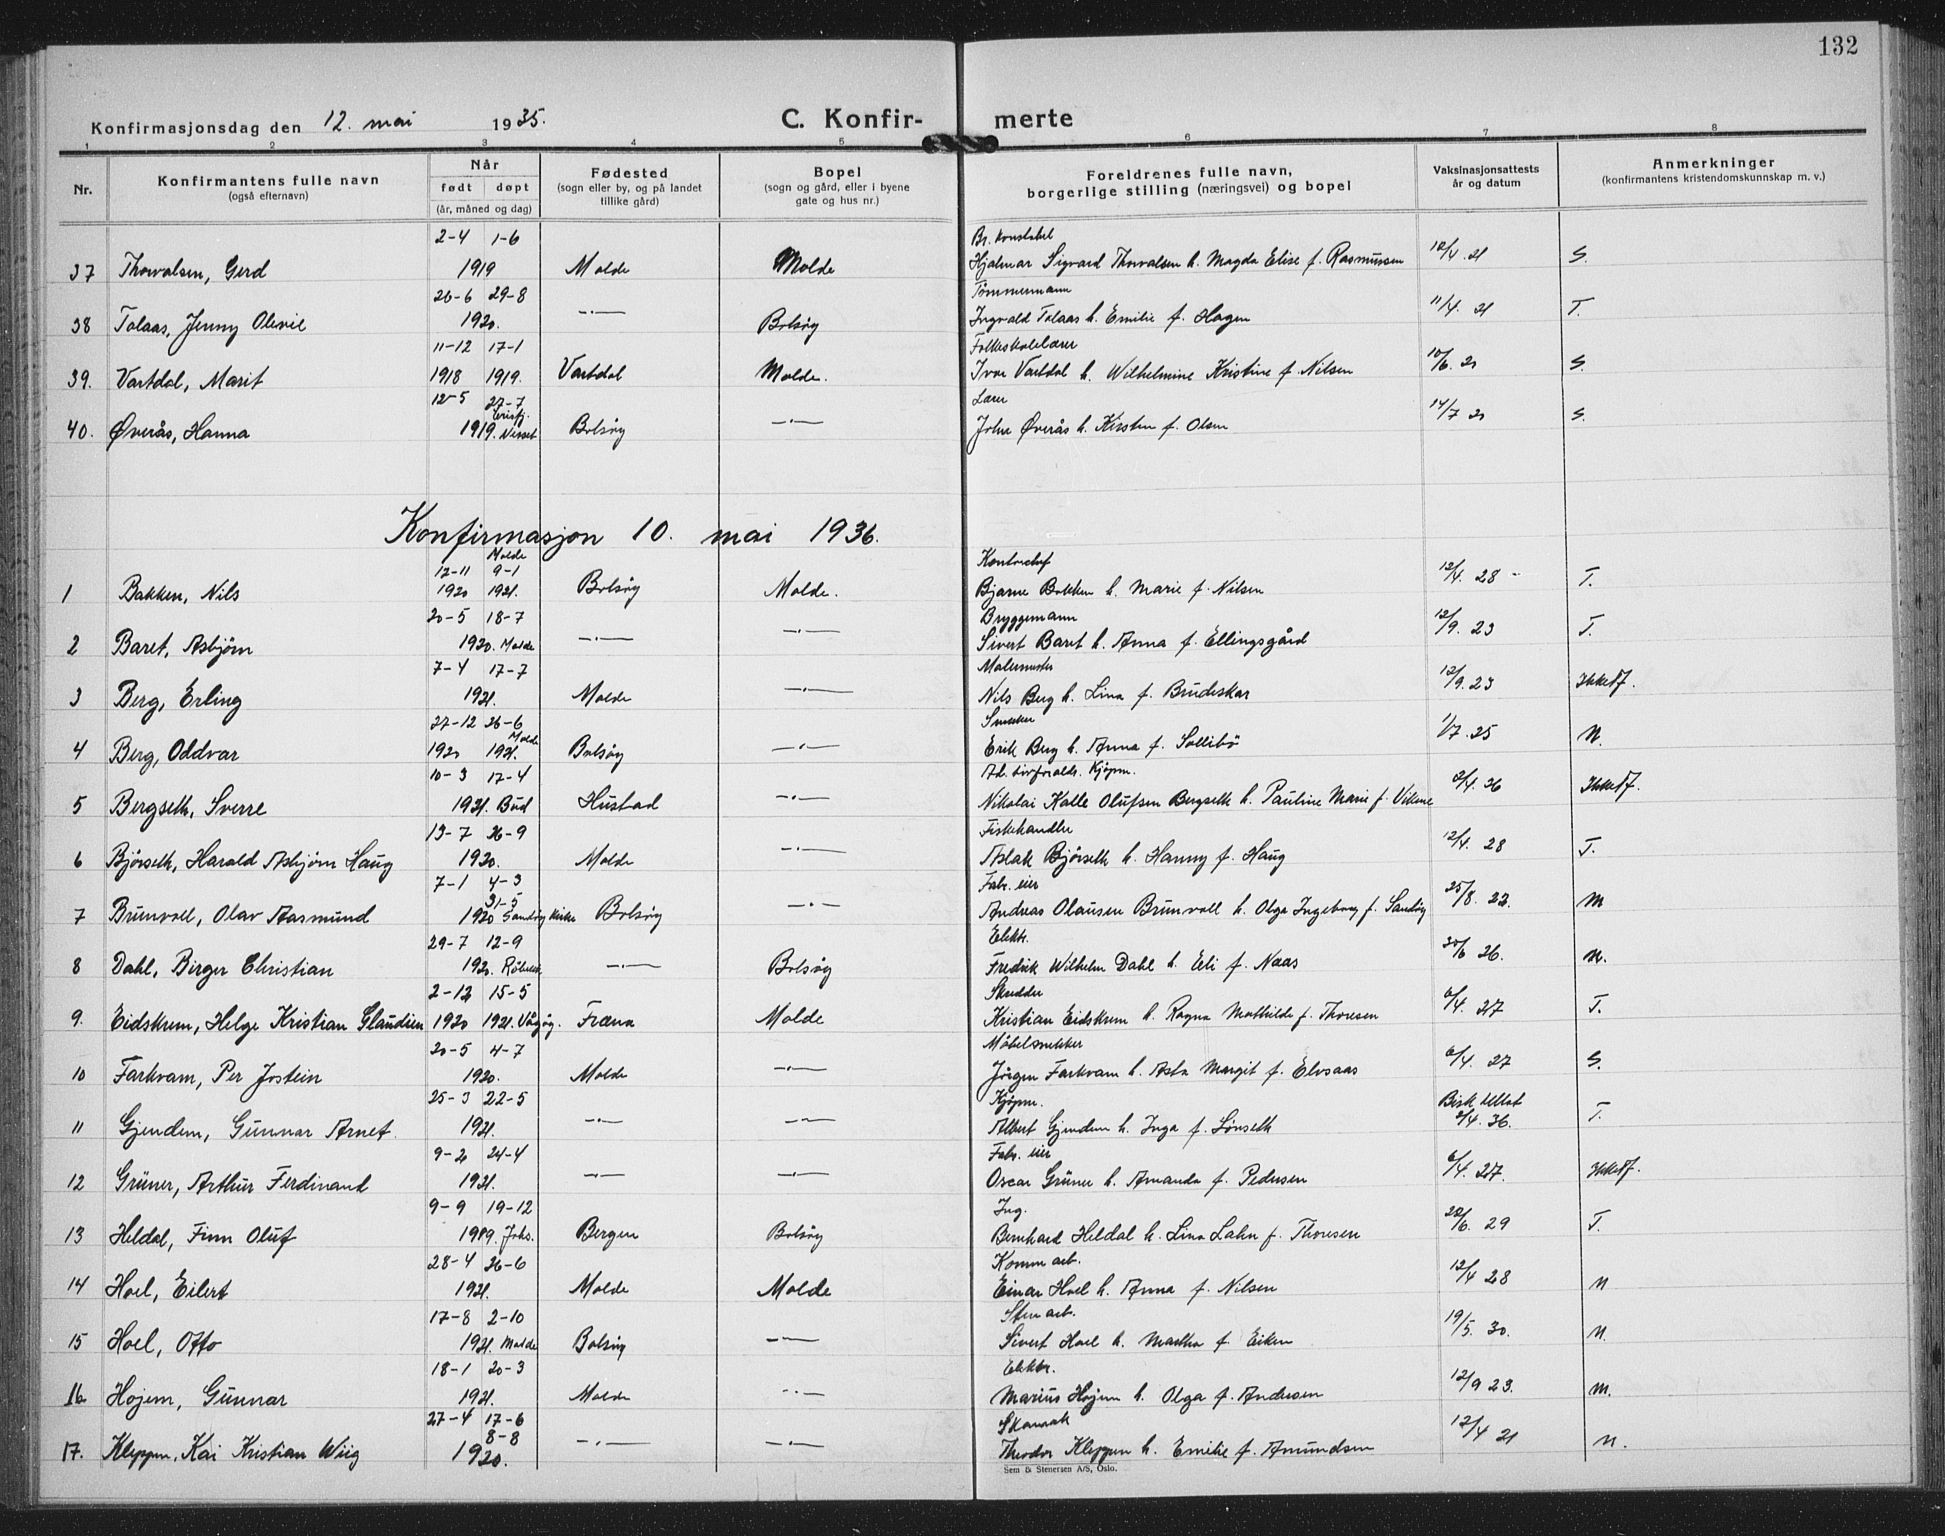 132
Konfirmasjonsdag den 12. mai 1935. C. Konfirmerte
1 2 3 4 5 6 7 8
Nr. Konfirmantens fulle navn (også efternavn) Når født døpt (år, måned og dag) Fødested (sogn eller by, og på landet tillike gård) Bopel (sogn og gård, eller i byene gate og hus nr.) Foreldrenes fulle navn, borgerlige stilling (næringsvei) og bopel Vaksinasjonsattests år og datum Anmerkninger (konfirmantens kristendomskunnskap m. v.)
2-4 1-6 Br. konstabel
37 Thorvalsen, Gerd 1919 Molde Molde Hjalmar Sigvard Thorvalsen h. Magda Elise f. Rasmussen 12/4 21 S.
20-6 29-8 Tømmermann
38 Tolaas, Jenny Olevie 1920. —·— Bolsøy Ingvald Tolaas h. Emilie f. Hagen 11/4. 21 T.
11-12 17-1 Folkeskolelærer
39. Vartdal, Marit 1918 1919. Vartdal Molde. Ivar Vartdal h. Wilhelmine Kristine f. Nilsen 10/6. 21 S.
12-5 27-7 Lærer
40. Øverås, Hanna 1919. Nesset Bolsøy —·— Johe Øverås h. Kirsten f. Olsen 14/7 21 S.
Konfirmasjon 10. mai 1936.
Molde
12-11 9-1 Kontorchef
1 Bakken, Nils 1920 1921. Bolsøy Molde. Bjarne Bakken h. Marie f. Nilsen 12/4. 28 - T.
20-5 18-7 Bryggemann
2 Baret, Asbjørn 1920. Molde —·— —·— Sivert Baret h. Anna f. Ellingsgård 12/9. 23 T.
7-4 17-7 Malermester
3 Berg, Erling 1921. Molde —·— Nils Berg h. Lina f. Brudeskar 12/9. 23 Ikke T.
27-12 26-6 Snekker
4 Berg, Oddvar 1920 1921. Molde Bolsøy —·— Erik Berg h. Anna f. Sollibø 1/7. 25 N.
10-3 17-4 Kjøpm.
5 Bergseth, Sverre 1921. Bud Hustad —·— Nikolai Kalle Olufsen Bergseth h. Pauline Marie f. Vikene 2/4. 36 Ikke T.
13-7 26-9 Fiskehandler
6 Bjørseth, Harald Asbjørn Haug 1920. Molde —·— Aslak Bjørseth h. Hanny f. Haug 12/4. 28 T.
7-1 4-3 Fabr. eier
31-5
7 Brunvoll, Olav Aasmund 1920 Sandøy kirke Bolsøy —·— Andreas Olausen Brunvoll h. Olga Ingeborg f. Sandøy 25/8. 22. M
29-7 12-9 Elektr.
8 Dahl, Birger Christian 1920. —·— Bolsøy Fredrik Wilhelm Dahl h. Eli f. Naas 30/6 26. M.
2-12 15-5 Skredder
9. Eidskrem, Helge Kristian Glaudiin 1920 1921. Vågøy. Fræna Molde Kristian Eidskrem h. Ragna Mathilde f. Thoresen 6/4. 27 T.
20-5 4-7 Møbelsnekker
10 Farkvam, Per Jostein 1920. Molde —·— Jørgen Farkvam h. Asta Margit f. Elvsaas 6/4. 27 S.
25-3 22-5 Kjøpm. Bisk. tillat
11 Gjendem, Gunnar Arnet. 1921. —·— —·— Albert Gjendem h. Inga f. Lønseth 2/4. 36. T.
9-2 24-4 Fabr. eier
12 Grüner, Arthur Ferdinand 1921. —·— —·— Oscar Grüner h. Amanda f. Pedersen 6/4. 27. Ikke T.
9-9 19-12 Ing.
13 Heldal, Finn Oluf 1919. Johs. Bergen Bolsøy Bernhard Heldal h. Lina Lahn f. Thoresen 22/6. 29 T.
28-4 26-6 Komm arb.
14 Hoel, Eilert 1921. Molde Molde Einar Hoel h. Anna f. Nilsen 12/4 28 N
17-8 2-10 Sten arb.
15 Hoel, Otto 1921. Molde Bolsøy —·— Sivert Hoel h. Martha f. Eiken 19/5. 30. N.
18-1 20-3 Elektr.
16 Højem, Gunnar 1921. Molde —·— Marius Højem h. Olga f. Andersen 12/9 23. M.
27-4 17-6
8-8
17. Kleppen, Kai Kristian Wiig 1920. —·— —·— Theodor Kleppen h. Emilie f. Amundsen 12/4 21 N.
Sem & Stenersen A/S, Oslo.